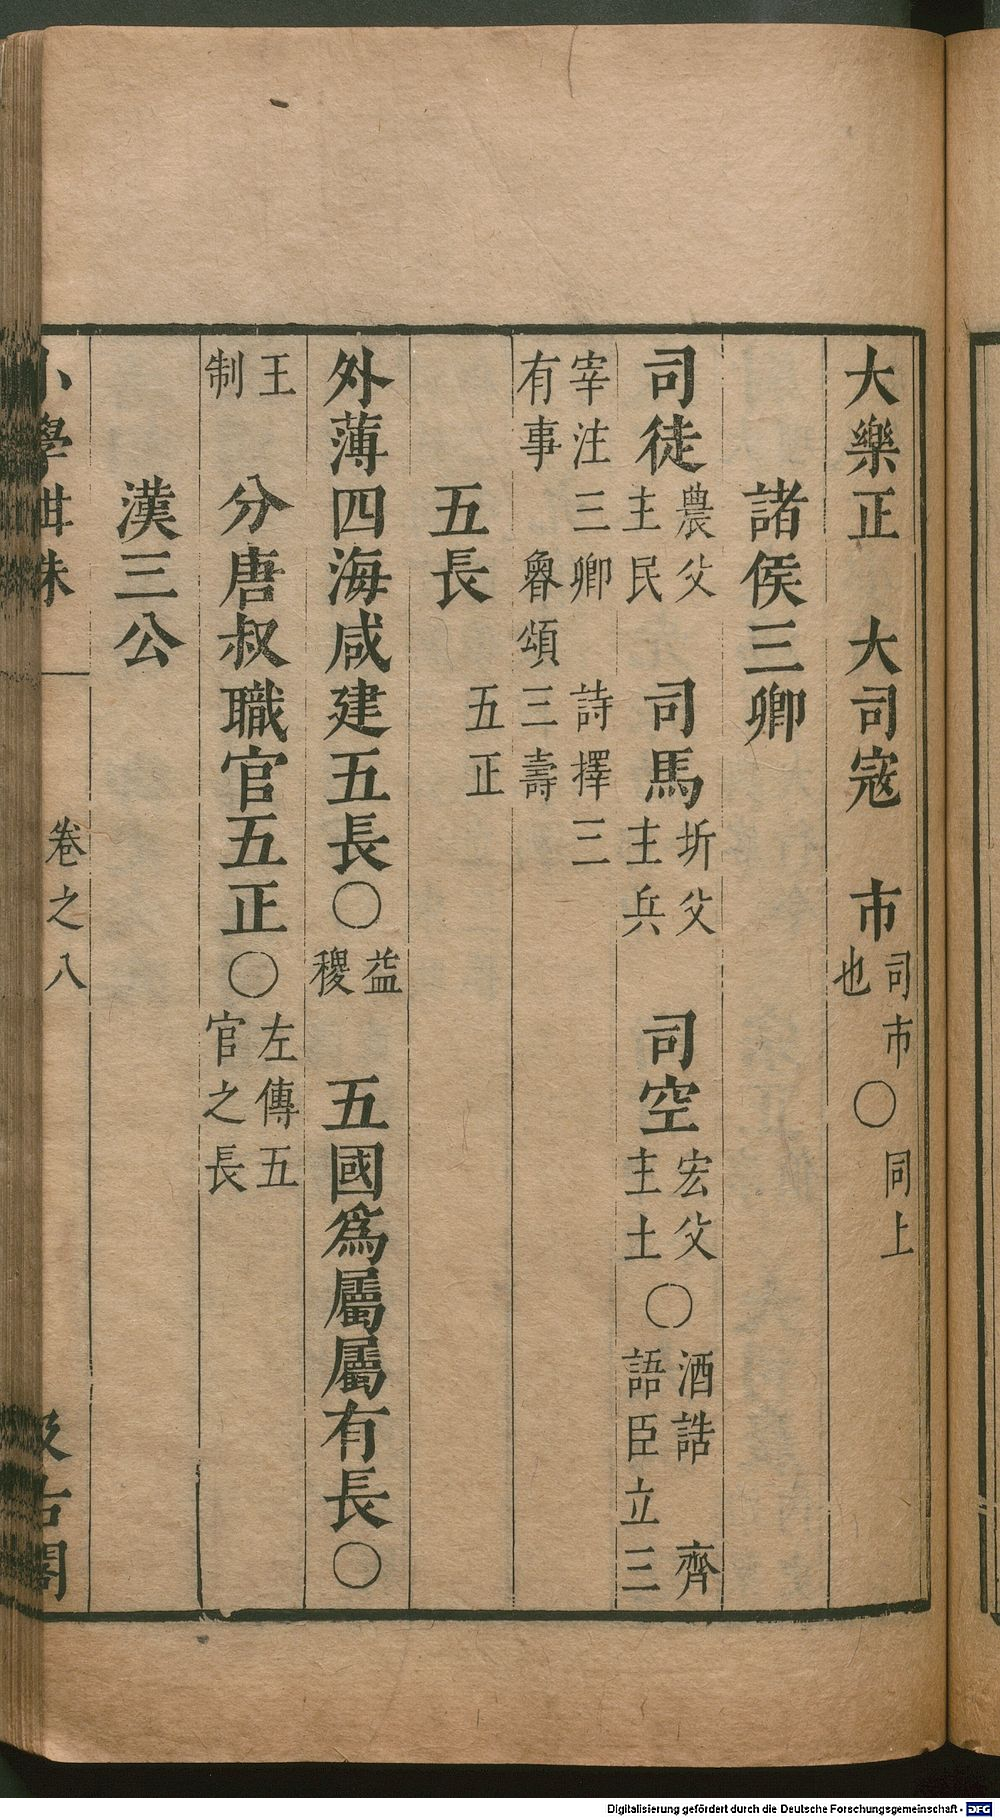 大樂正　大司寇　市司市也〇同上
諸侯三卿
司徒農父主民　司馬圻父主兵　司空宏父主土〇酒誥　齊語臣立三
宰注三卿　詩擇三有事　魯頌三壽
五長　五正
外薄四海咸建五長〇益稷　五國爲屬屬有長〇
王制　分唐叔職官五正〇左傳五官之長
漢三公
小學紺珠　卷之八　汲古閣
Digitalisierung gefördert durch die Deutsche Forschungsgemeinschaft - DFG